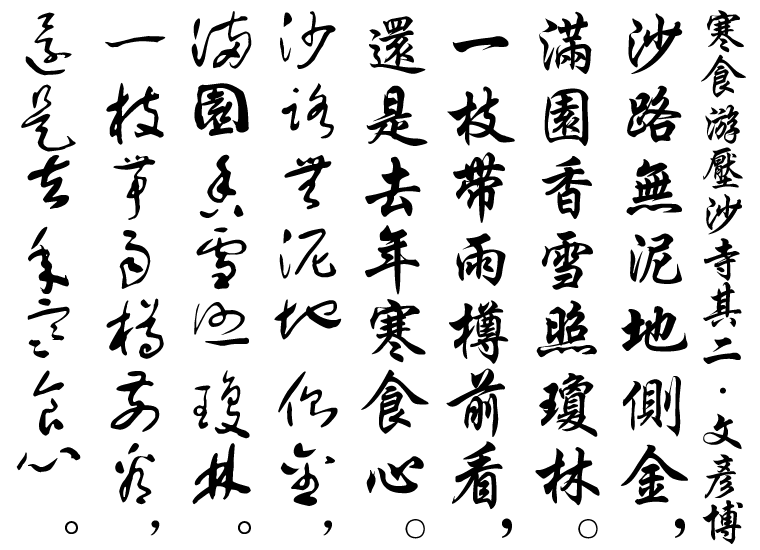 寒食游壓沙寺其二·文彥博
沙路無泥地側金，
滿園香雪照瓊林。
一枝帶雨樽前看，
還是去年寒食心。
沙路無泥地側金，
滿園香雪照瓊林。
一枝帶雨樽前看，
還是去年寒食心。